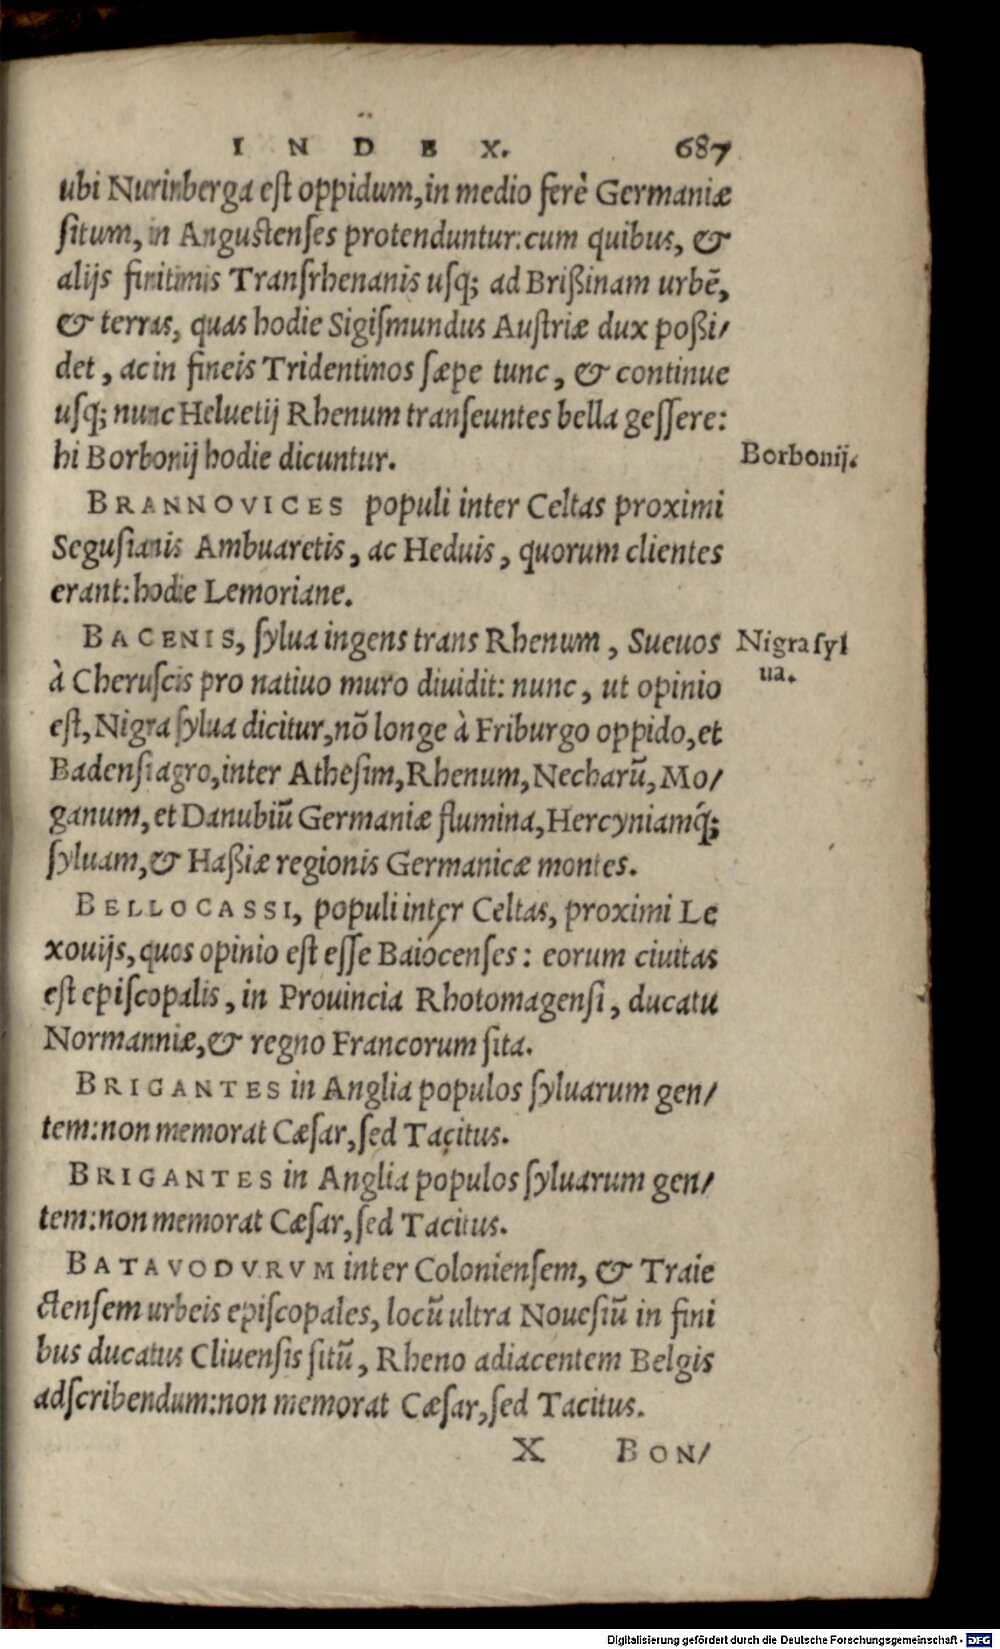 INDEX. 687
ubi Nurinberga est oppidum, in medio ferè Germaniæ
situm, in Angustenses protenduntur: cum quibus, &
alijs finitimis Transrhenanis usq; ad Brißinam urbē,
& terras, quas hodie Sigismundus Austriæ dux poßi/
det, ac in fineis Tridentinos sæpe tunc, & continue
usq; nunc Heluetij Rhenum transeuntes bella gessere:
hi Borbonij hodie dicuntur.
Borbonij.
BRANNOVICES populi inter Celtas proximi
Segusianis Ambuaretis, ac Heduis, quorum clientes
erant: hodie Lemoriane.
BACENIS, sylua ingens trans Rhenum, Sueuos
Nigra syl
ua.
à Cheruscis pro natiuo muro diuidit: nunc, ut opinio
est, Nigra sylua dicitur, nō longe à Friburgo oppido, et
Badensi agro, inter Athesim, Rhenum, Necharū, Mo/
ganum, et Danubiū Germaniæ flumina, Hercyniamq́;
syluam, & Haßiæ regionis Germanicæ montes.
BELLOCASSI, populi inter Celtas, proximi Le
xouijs, quos opinio est esse Baiocenses: eorum ciuitas
est episcopalis, in Prouincia Rhotomagensi, ducatu
Normanniæ, & regno Francorum sita.
BRIGANTES in Anglia populos syluarum gen/
tem: non memorat Cæsar, sed Tacitus.
BRIGANTES in Anglia populos syluarum gen/
tem: non memorat Cæsar, sed Tacitus.
BATAVODVRVM inter Coloniensem, & Traie
ctensem urbeis episcopales, locū ultra Nouesiū in fini
bus ducatus Cliuensis sitū, Rheno adiacentem Belgis
adscribendum: non memorat Cæsar, sed Tacitus.
X BON/
Digitalisierung gefördert durch die Deutsche Forschungsgemeinschaft - DFG